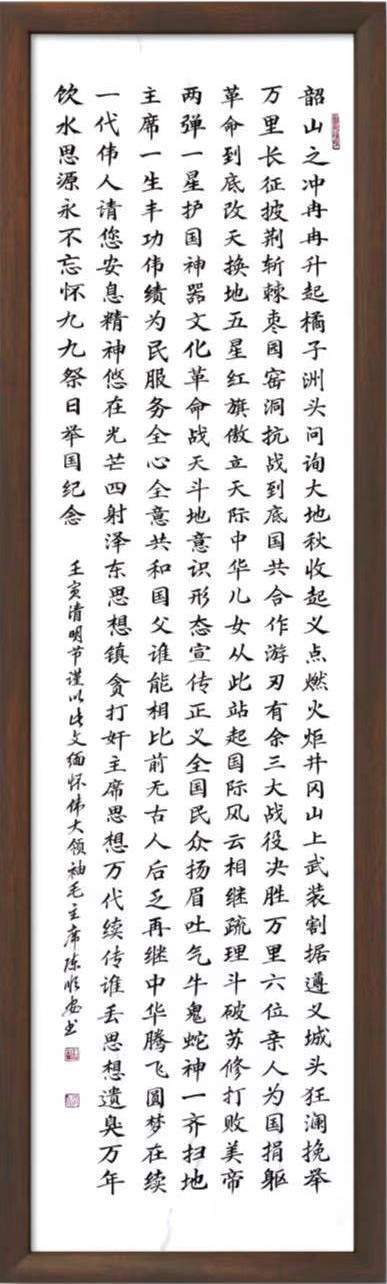 韶山之冲冉冉升起橘子洲头问询大地秋收起义点燃火炬井冈山上武装割据遵义城头狂澜挽举
万里长征披荆斩棘枣园窑洞抗战到底国共合作游刃有余三大战役决胜万里六位亲人为国捐躯
革命到底改天换地五星红旗傲立天际中华儿女从此站起国际风云相继疏理斗破苏修打败美帝
两弹一星护国神器文化革命战天斗地意识形态宣传正义全国民众扬眉吐气牛鬼蛇神一齐扫地
主席一生丰功伟绩为民服务全心全意共和国父谁能相比前无古人后乏再继中华腾飞圆梦在续
一代伟人请您安息精神悠在光芒四射泽东思想镇贪打奸主席思想万代续传谁丢思想遗臭万年
饮水思源永不忘怀九九祭日举国纪念
壬寅清明节谨以此文缅怀伟大领袖毛主席陈
书